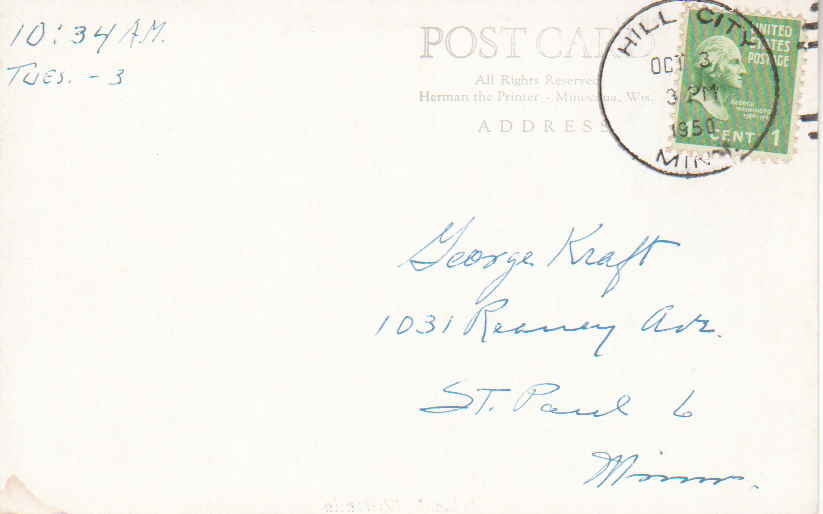 10:34 A.M.
TUES. - 3
POST CARD
All Rights Reserved
Herman the Printer - Minocqua, Wis.
ADDRESS
HILL CITY
OCT 3
3 PM
1950
MINN.
UNITED
STATES
POSTAGE
GEORGE
WASHINGTON
1 CENT 1
George Kraft
1031 Reaney Ave.
St. Paul 6
Minn.